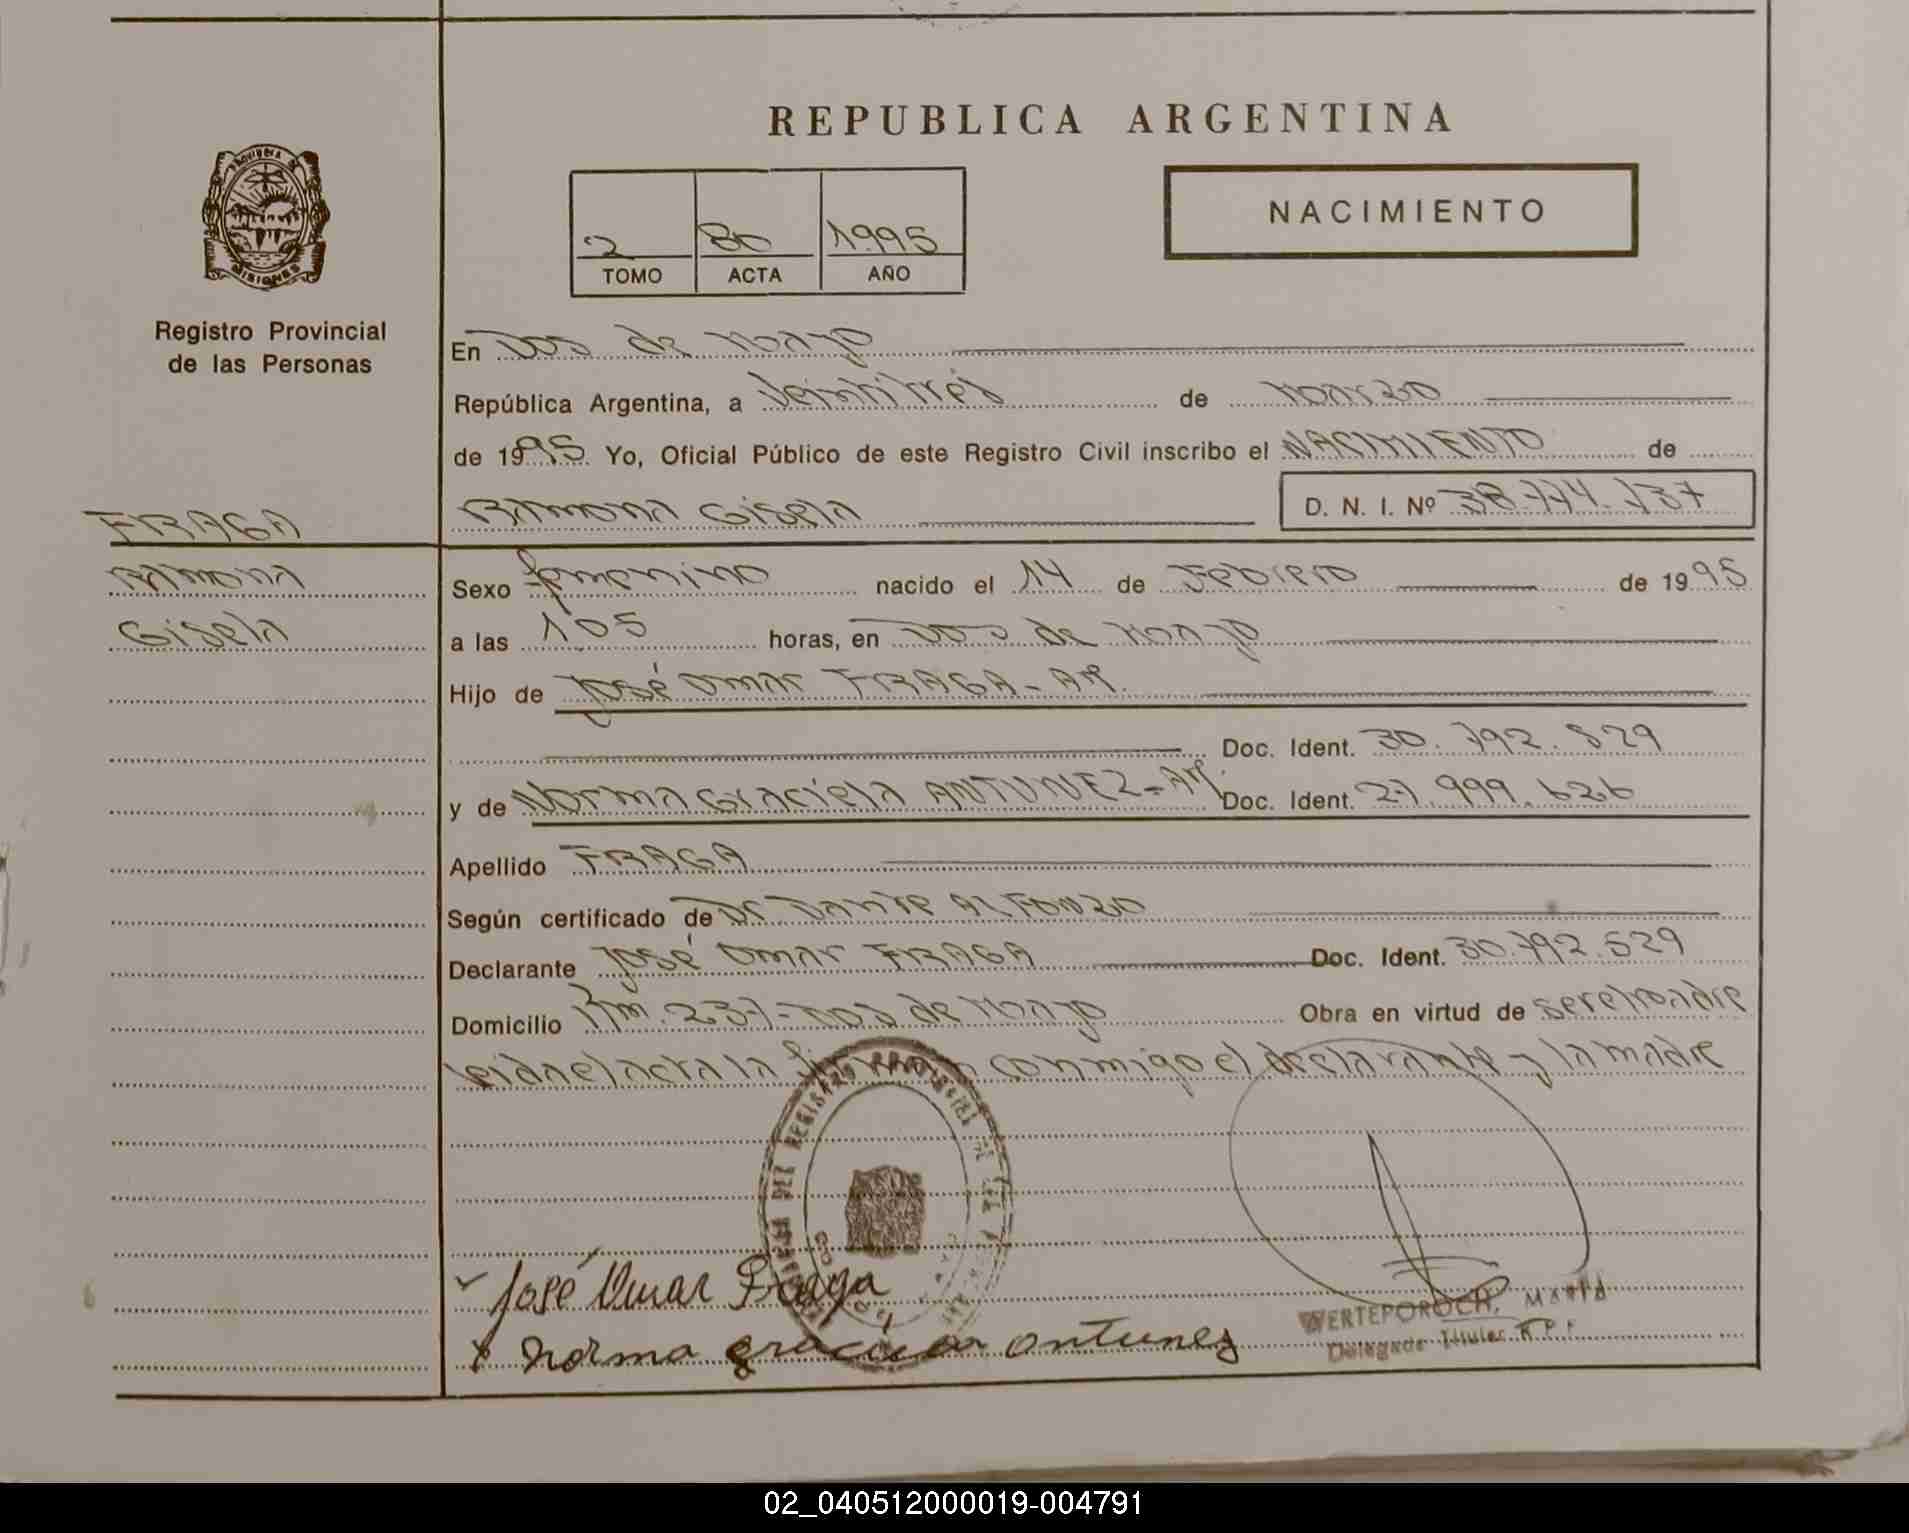 REPUBLICA ARGENTINA
PROVINCIA DE
MISIONES
Registro Provincial
de las Personas
2 80 1995
TOMO ACTA AÑO
NACIMIENTO
En Dos de Mayo
República Argentina, a Veintitres de Marzo
de 1995 Yo, Oficial Público de este Registro Civil inscribo el NACIMIENTO de
FRAGA
Ramona Gisela
D. N. I. Nº 38.774.737
Ramona
Gisela
Sexo femenino nacido el 14 de Febrero de 1995
a las 105 horas, en Dos de Mayo
Hijo de José Omar FRAGA - Ar.
Doc. Ident. 30.792.529
y de Norma Graciela ANTUNEZ - Ar. Doc. Ident. 27.999.626
Apellido FRAGA
Según certificado de Dr Dante Alfonzo
Declarante José Omar FRAGA Doc. Ident. 30.792.529
Domicilio Km. 237 - Dos de Mayo Obra en virtud de ser el padre
leida el acta la firman conmigo el declarante y la madre
José Omar Fraga
x Norma graciela antunez
WERTEPOROCH, María
Delegada Titular R.P.P.
02_040512000019-004791